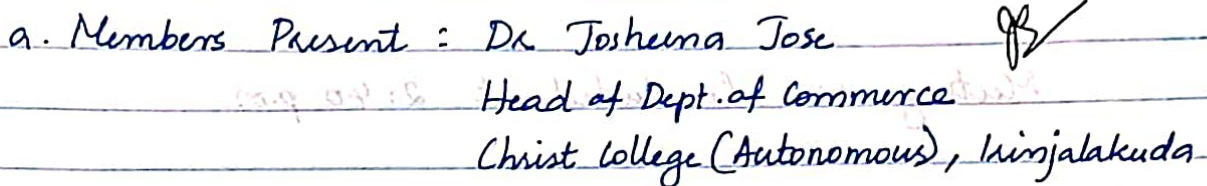 a. Members Present : Dr Josheena Jose
Head of Dept. of Commerce
Christ College (Autonomous), Irinjalakuda